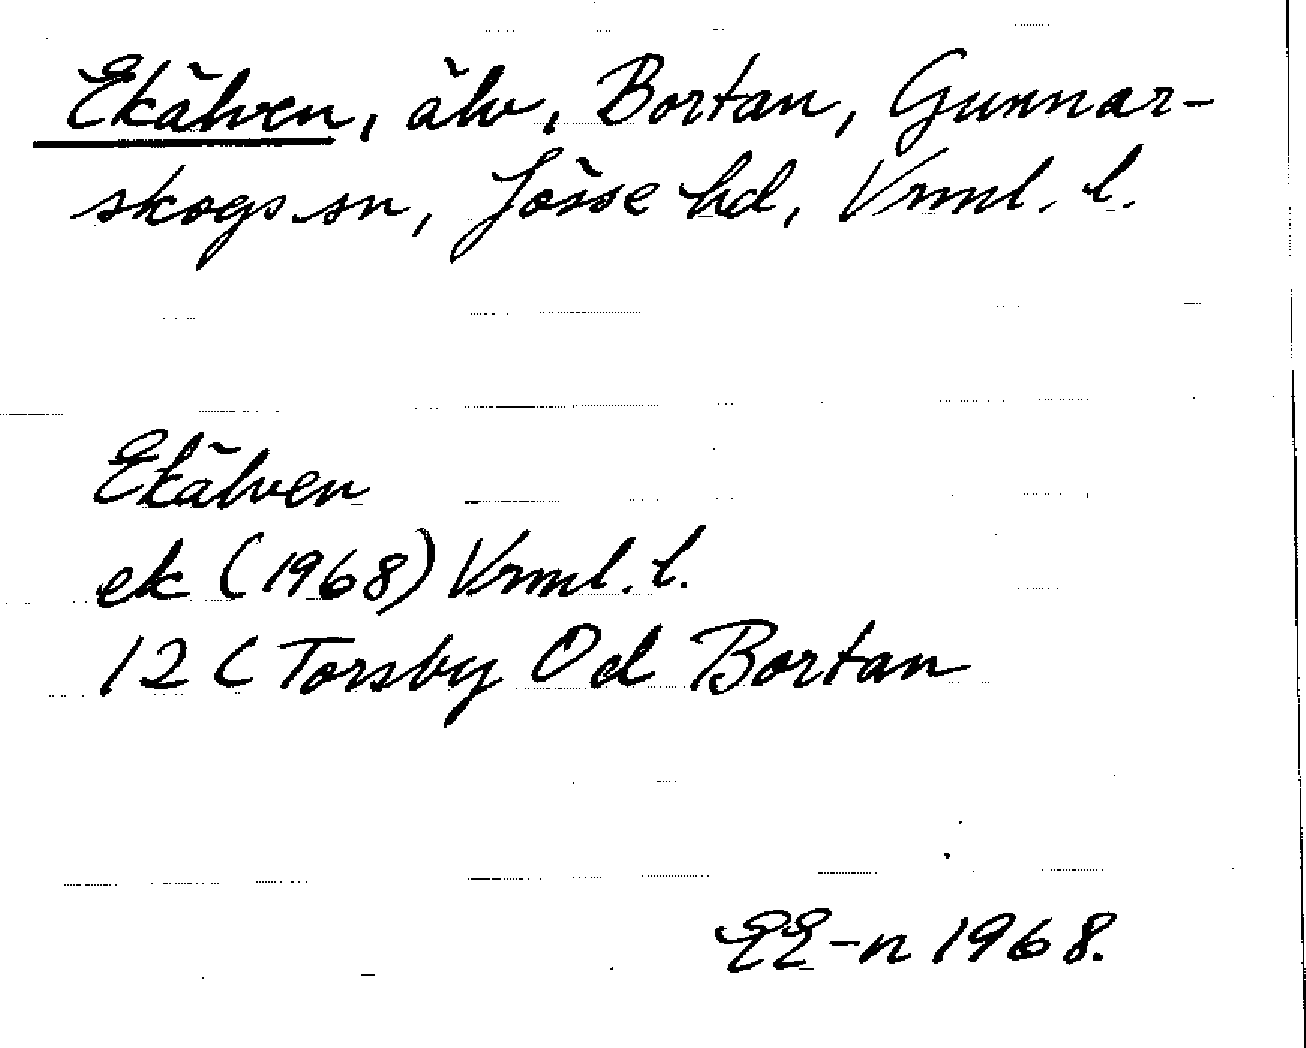 Ekälven, älv, Bortan, Gunnar-
skogs sn, Jösse hd, Vrml. l.
Ekälven
ek (1968) Vrml. l.
12 C Torsby Od Bortan
EE-n 1968.